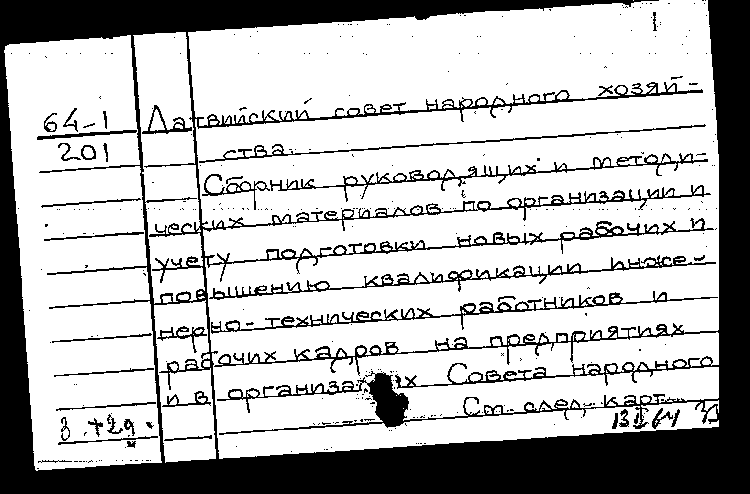 64-1 Латвийский совет народного хозяй-
201 ства.
Сборник руководящих и методи-
ческих материалов по организации и
учету подготовки новых рабочих и
повышению квалификации инже-
нерно-технических работников и
рабочих кадров на предприятиях
и в организа х Совета народного
См. след. карт.